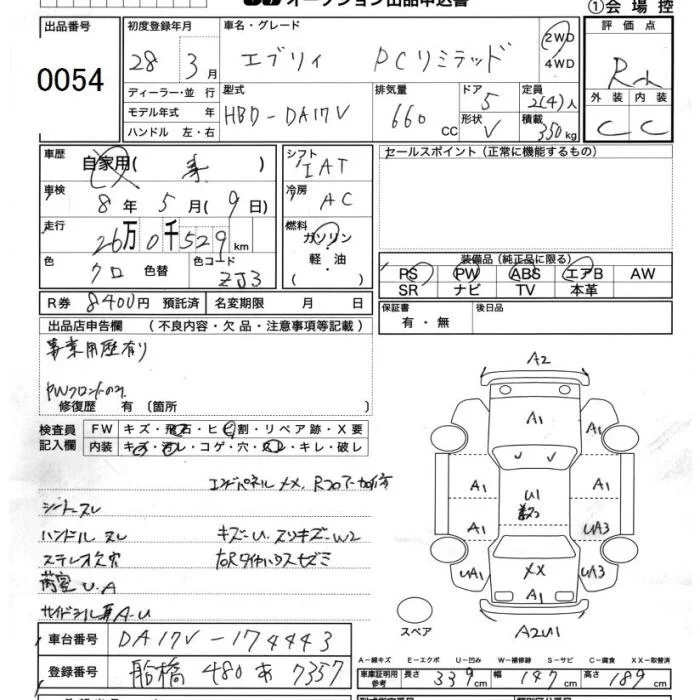 オークション出品申込書
①会場控
出品番号
0054
初度登録年月
28 3月
ディーラー・並行
モデル年式 年
ハンドル 左・右
車名・グレード
エブリィ PCリミテッド
2WD
4WD
型式
HBD-DA17V
排気量
660cc
ドア
5
形状
V
定員
2(4)人
積載
350kg
評価点
RA
外装 内装
C C
車歴
自家用( 事 )
車検
8年5月(9日)
走行
26万0千529km
色
クロ 色替
色コード
ZJ3
シフト
IAT
冷房
AC
燃料
ガソリン・
軽・油
( )
セールスポイント(正常に機能するもの)
装備品(純正品に限る)
PS PW ABS エアB AW
SR ナビ TV 本革
R券 8400円 預託済 名変期限 月 日
保証書
有・無
後日品
出品店申告欄 (不良内容・欠品・注意事項等記載)
事業用歴有り
PWフロントのみ
修復歴 有〔箇所 〕
検査員
記入欄
FW キズ・飛石・ヒビ割・リペア跡・X要
内装 キズ・汚れ・コゲ・穴・スレ・キレ・破レ
シートスレ
ハンドルスレ キズ-U. スリキズ-W2
ステレオ欠穴 右Rタイヤハウスセズミ
荷室U.A
A2
A1
A1 A1
A1 U1 A1
A1 UA3
UA1 XX UA3
A1
A2U1
スペア
車台番号 DA17V-174443
登録番号 船橋 480 あ 7357
A-線キズ E-エクボ U-凹み W-補修跡 S-サビ C-腐食 XX-取替済
車庫証明用
参考
長さ 339cm 幅 147cm 高さ 189cm